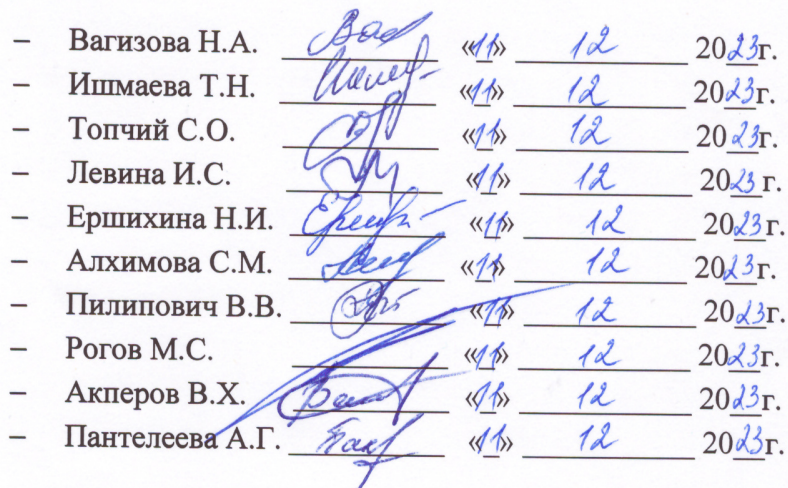 – Вагизова Н.А. «11» 12 2023г.
– Ишмаева Т.Н. «11» 12 2023г.
– Топчий С.О. «11» 12 2023г.
– Левина И.С. «11» 12 2023г.
– Ершихина Н.И. «11» 12 2023г.
– Алхимова С.М. «11» 12 2023г.
– Пилипович В.В. «11» 12 2023г.
– Рогов М.С. «11» 12 2023г.
– Акперов В.Х. «11» 12 2023г.
– Пантелеева А.Г. «11» 12 2023г.